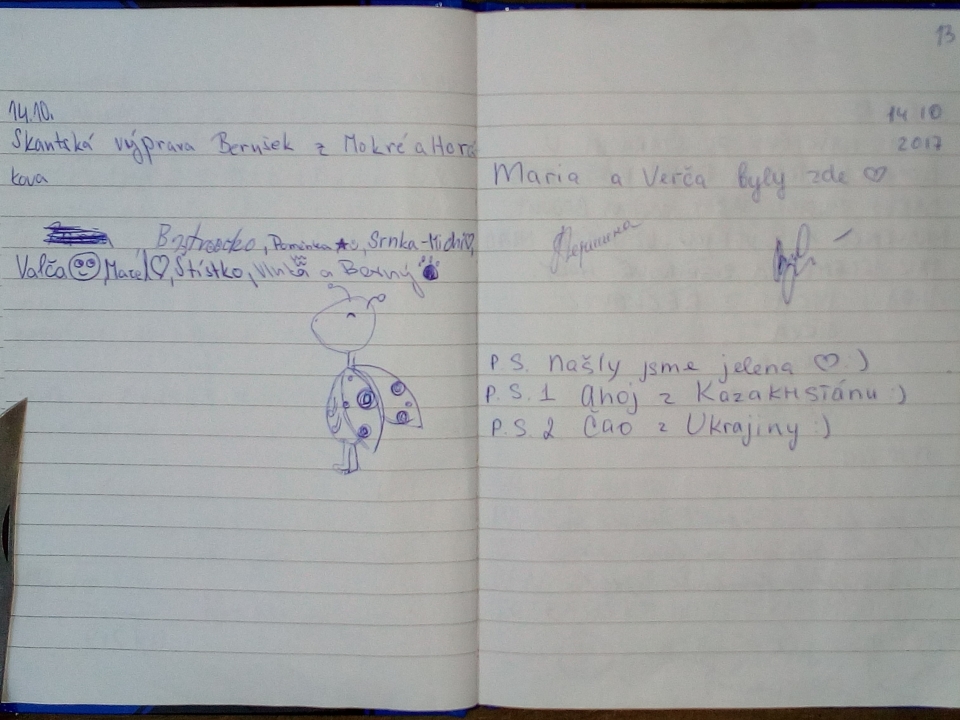 14.10.
Skautská výprava Berušek z Mokré a Horá
kova
Bystrozko, Pomínka, Srnka-Michi,
Valča, Maceš, Štístko, Vlnka a Borný
13
14 10
2017
Maria a Verča byly zde
P.S. Našly jsme jelena :)
P.S. 1 Ahoj z Kazakhstánu :)
P.S. 2 Čao z Ukrajiny :)